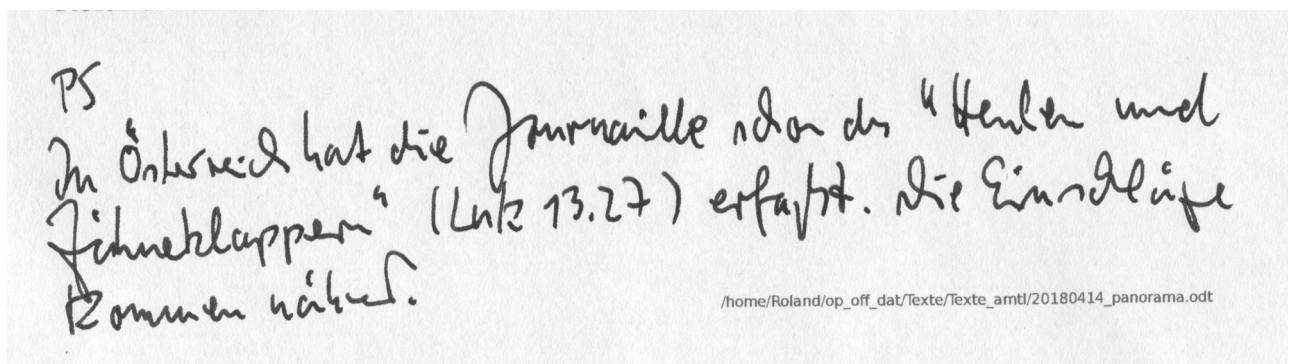 PS
In Österreich hat die Journaille schon das "Heulen und
Zähneklappern" (Luk 13.27) erfaßt. Die Einschläge
kommen näher.
/home/Roland/op_off_dat/Texte/Texte_amtl/20180414_panorama.odt